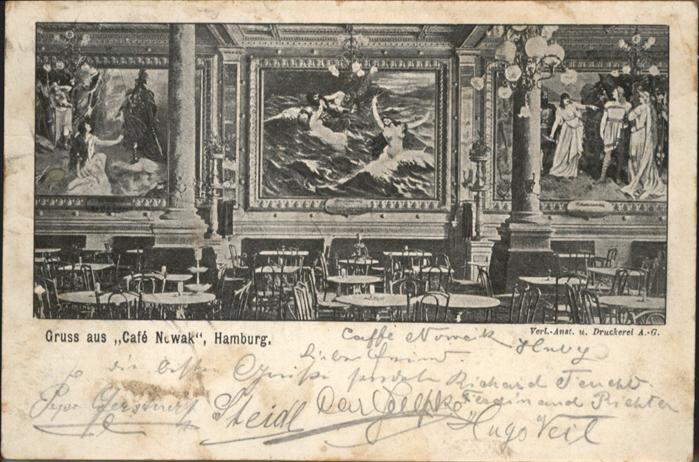 Gruss aus „Café Nowak“, Hamburg.
Verl.-Anst. u. Druckerei A.-G.
Caffé Nowak
Lieber Freund
die besten Grüße sendet Richard
Ferdinand Richter
Steidl
Hugo Veit